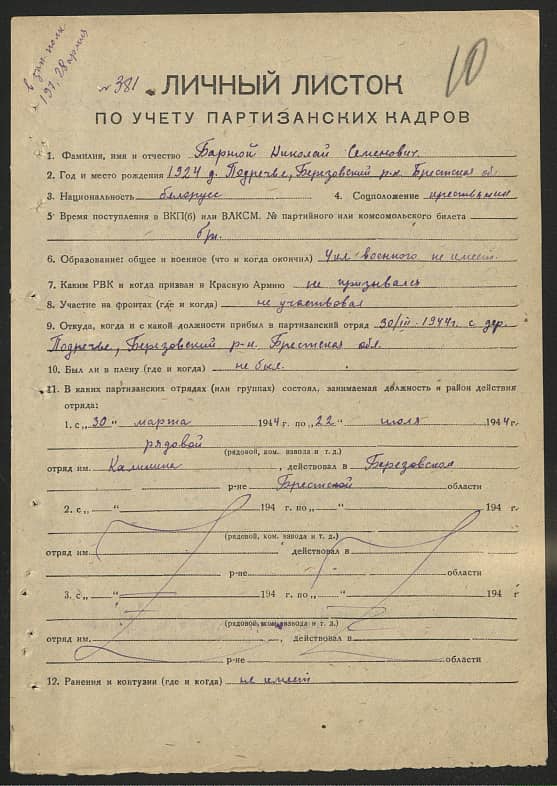 в зап. полк
197, 28 армия
10
№ 381 ЛИЧНЫЙ ЛИСТОК
ПО УЧЕТУ ПАРТИЗАНСКИХ КАДРОВ
1. Фамилия, имя и отчество Николай Семенович
2. Год и место рождения 1924 д. Подречье, Березовский р-н. Брестская об.
3. Национальность белорусс 4. Соцположение крестьянин
5 Время поступления в ВКП(б) или ВЛКСМ. № партийного или комсомольского билета
б/п.
6. Образование: общее и военное (что и когда окончил) 4 кл. военного не имеет.
7. Каким РВК и когда призван в Красную Армию не призывался
8. Участие на фронтах (где и когда) не участвовал
9. Откуда, когда и с какой должности прибыл в партизанский отряд 30/III-1944г. с дер.
Подречье, Березовский р-н. Брестская обл.
10. Был ли в плену (где и когда) не был.
11. В каких партизанских отрядах (или группах) состоял, занимаемая должность и район действия
отряда:
1. с „30" марта 1944 г. по „22" июля 1944 г.
рядовой
(рядовой, ком. взвода и т. д.)
отряд им. Калинина, действовал в Березовском
р-не Брестской области
2. с „ " 194 г. по „ " 194 г.
(рядовой, ком. взвода и т. д.)
отряд им. действовал в
р-не области
3. с „ " 194 г. по „ " 194 г
(рядовой, ком. взвода и т. д.)
отряд им. , действовал в
р-не области
12. Ранения и контузии (где и когда) не имеет